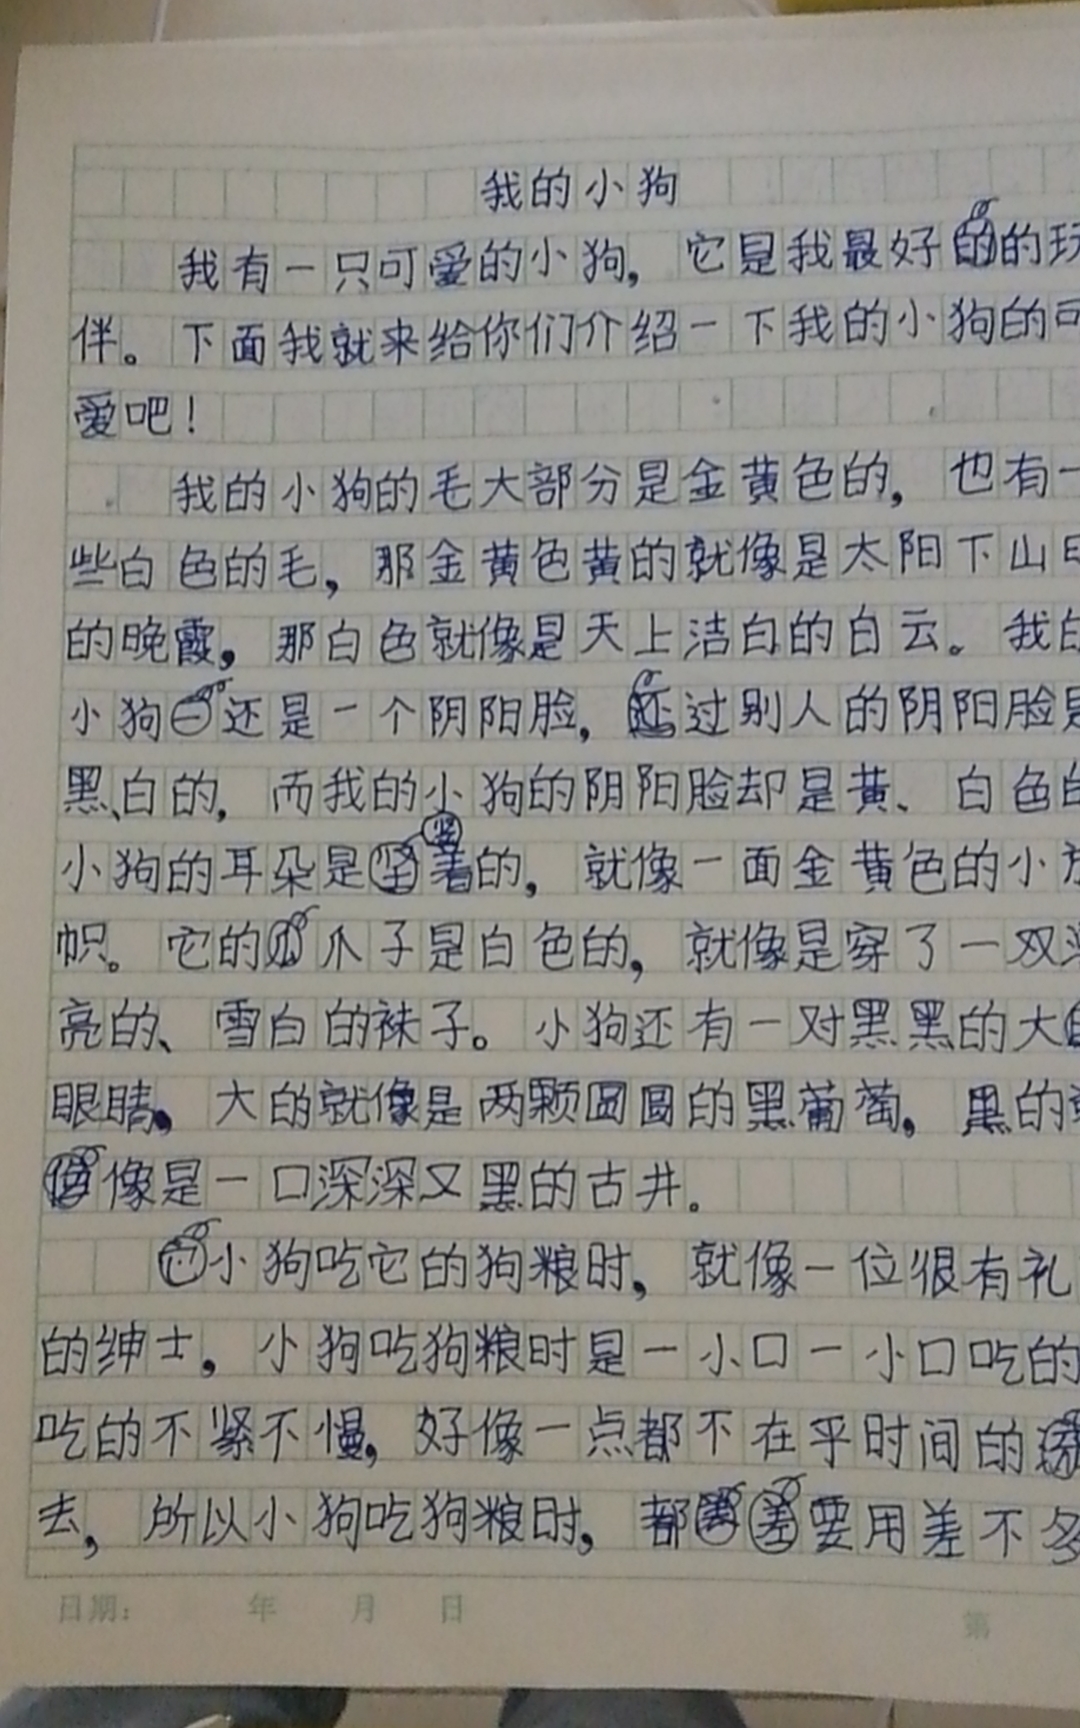 我的小狗
我有一只可爱的小狗，它是我最好的的玩
伴。下面我就来给你们介绍一下我的小狗的可
爱吧！
我的小狗的毛大部分是金黄色的，也有一
些白色的毛，那金黄色黄的就像是太阳下山时
的晚霞，那白色就像是天上洁白的白云。我的
小狗一还是一个阴阳脸，过别人的阴阳脸是
黑、白的，而我的小狗的阴阳脸却是黄、白色的
小狗的耳朵是竖着的，就像一面金黄色的小旗
帜。它的爪子是白色的，就像是穿了一双漂
亮的、雪白的袜子。小狗还有一对黑黑的大
眼睛，大的就像是两颗圆圆的黑葡萄，黑的就
像是一口深深又黑的古井。
它小狗吃它的狗粮时，就像一位很有礼
的绅士，小狗吃狗粮时是一小口一小口吃的
吃的不紧不慢，好像一点都不在乎时间的
去，所以小狗吃狗粮时，都差要用差不多
日期： 年 月 日
第